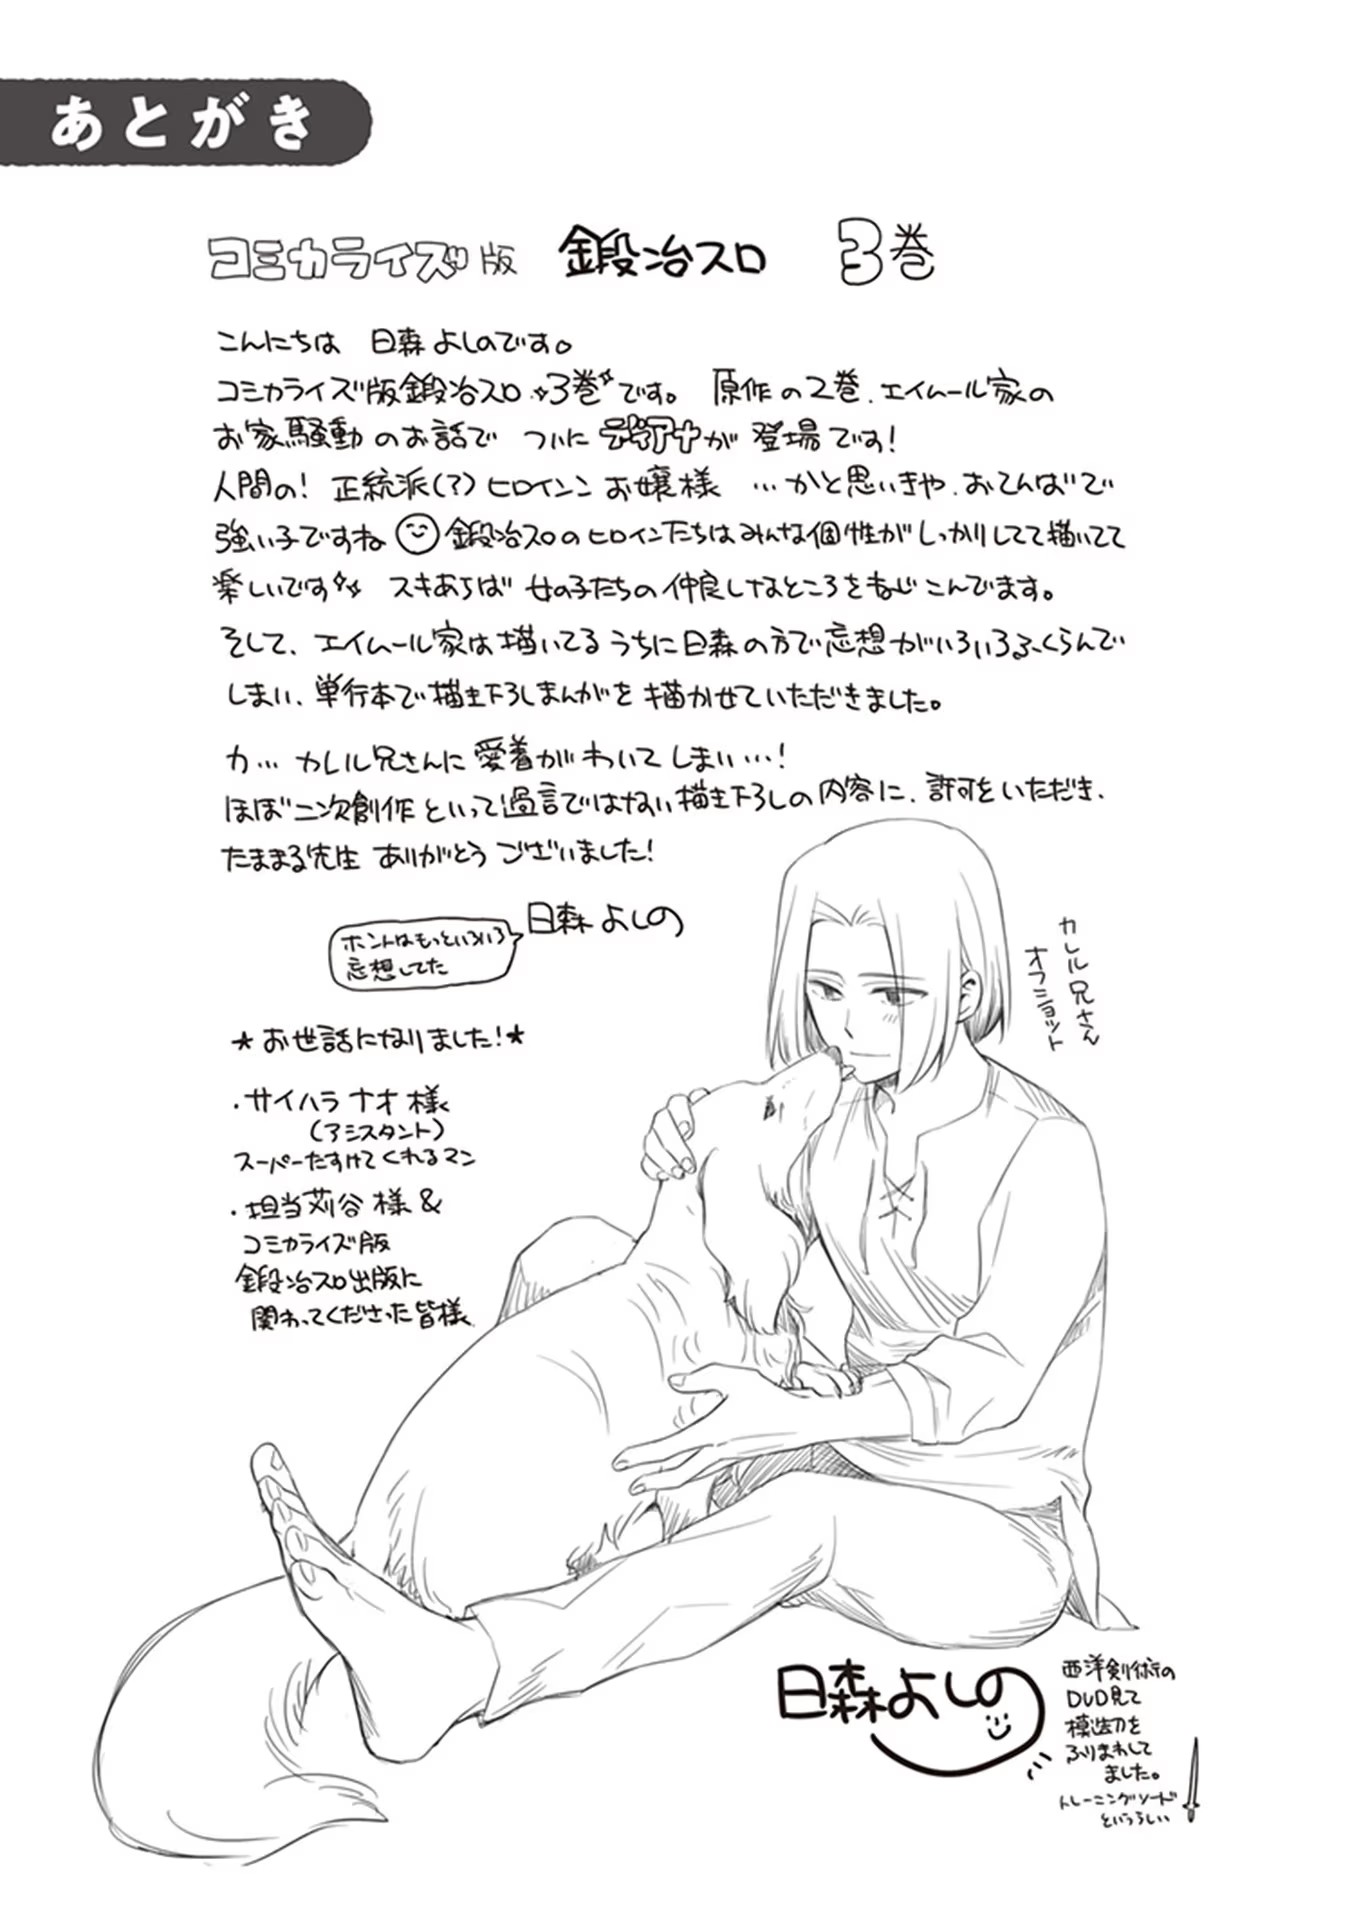 あとがき
コミカライズ版 鍛冶スロ 3巻
こんにちは 日森よしのです。
コミカライズ版鍛冶スロ 3巻です。 原作の2巻、エイムール家の
お家騒動のお話で ついにディアナが登場です!
人間の! 正統派(?)ヒロインン お嬢様 …かと思いきや、おてんばで
強い子ですね 鍛冶スロのヒロインたちはみんな個性がしっかりしてて描いてて
楽しいです スキあらば 女の子たちの仲良しなところをねじこんでます。
そして、エイムール家は描いてるうちに日森の方で妄想がいろいろふくらんで
しまい、単行本で描き下ろしまんがを描かせていただきました。
カ… カレル兄さんに愛着がわいてしまい…!
ほぼ二次創作といって過言ではない描き下ろしの内容に、許可をいただき、
たままる先生 ありがとうございました!
日森よしの
ホントはもっといろいろ
妄想してた
カレル兄さん
オフショット
★お世話になりました!★
・サイハラナオ様
(アシスタント)
スーパーたすけてくれるマン
・担当苅谷様&
コミカライズ版
鍛冶スロ出版に
関わってくださった皆様
日森よしの
西洋剣術の
DVD見て
模造刀を
ふりまわして
ました。
トレーニングソード
というらしい